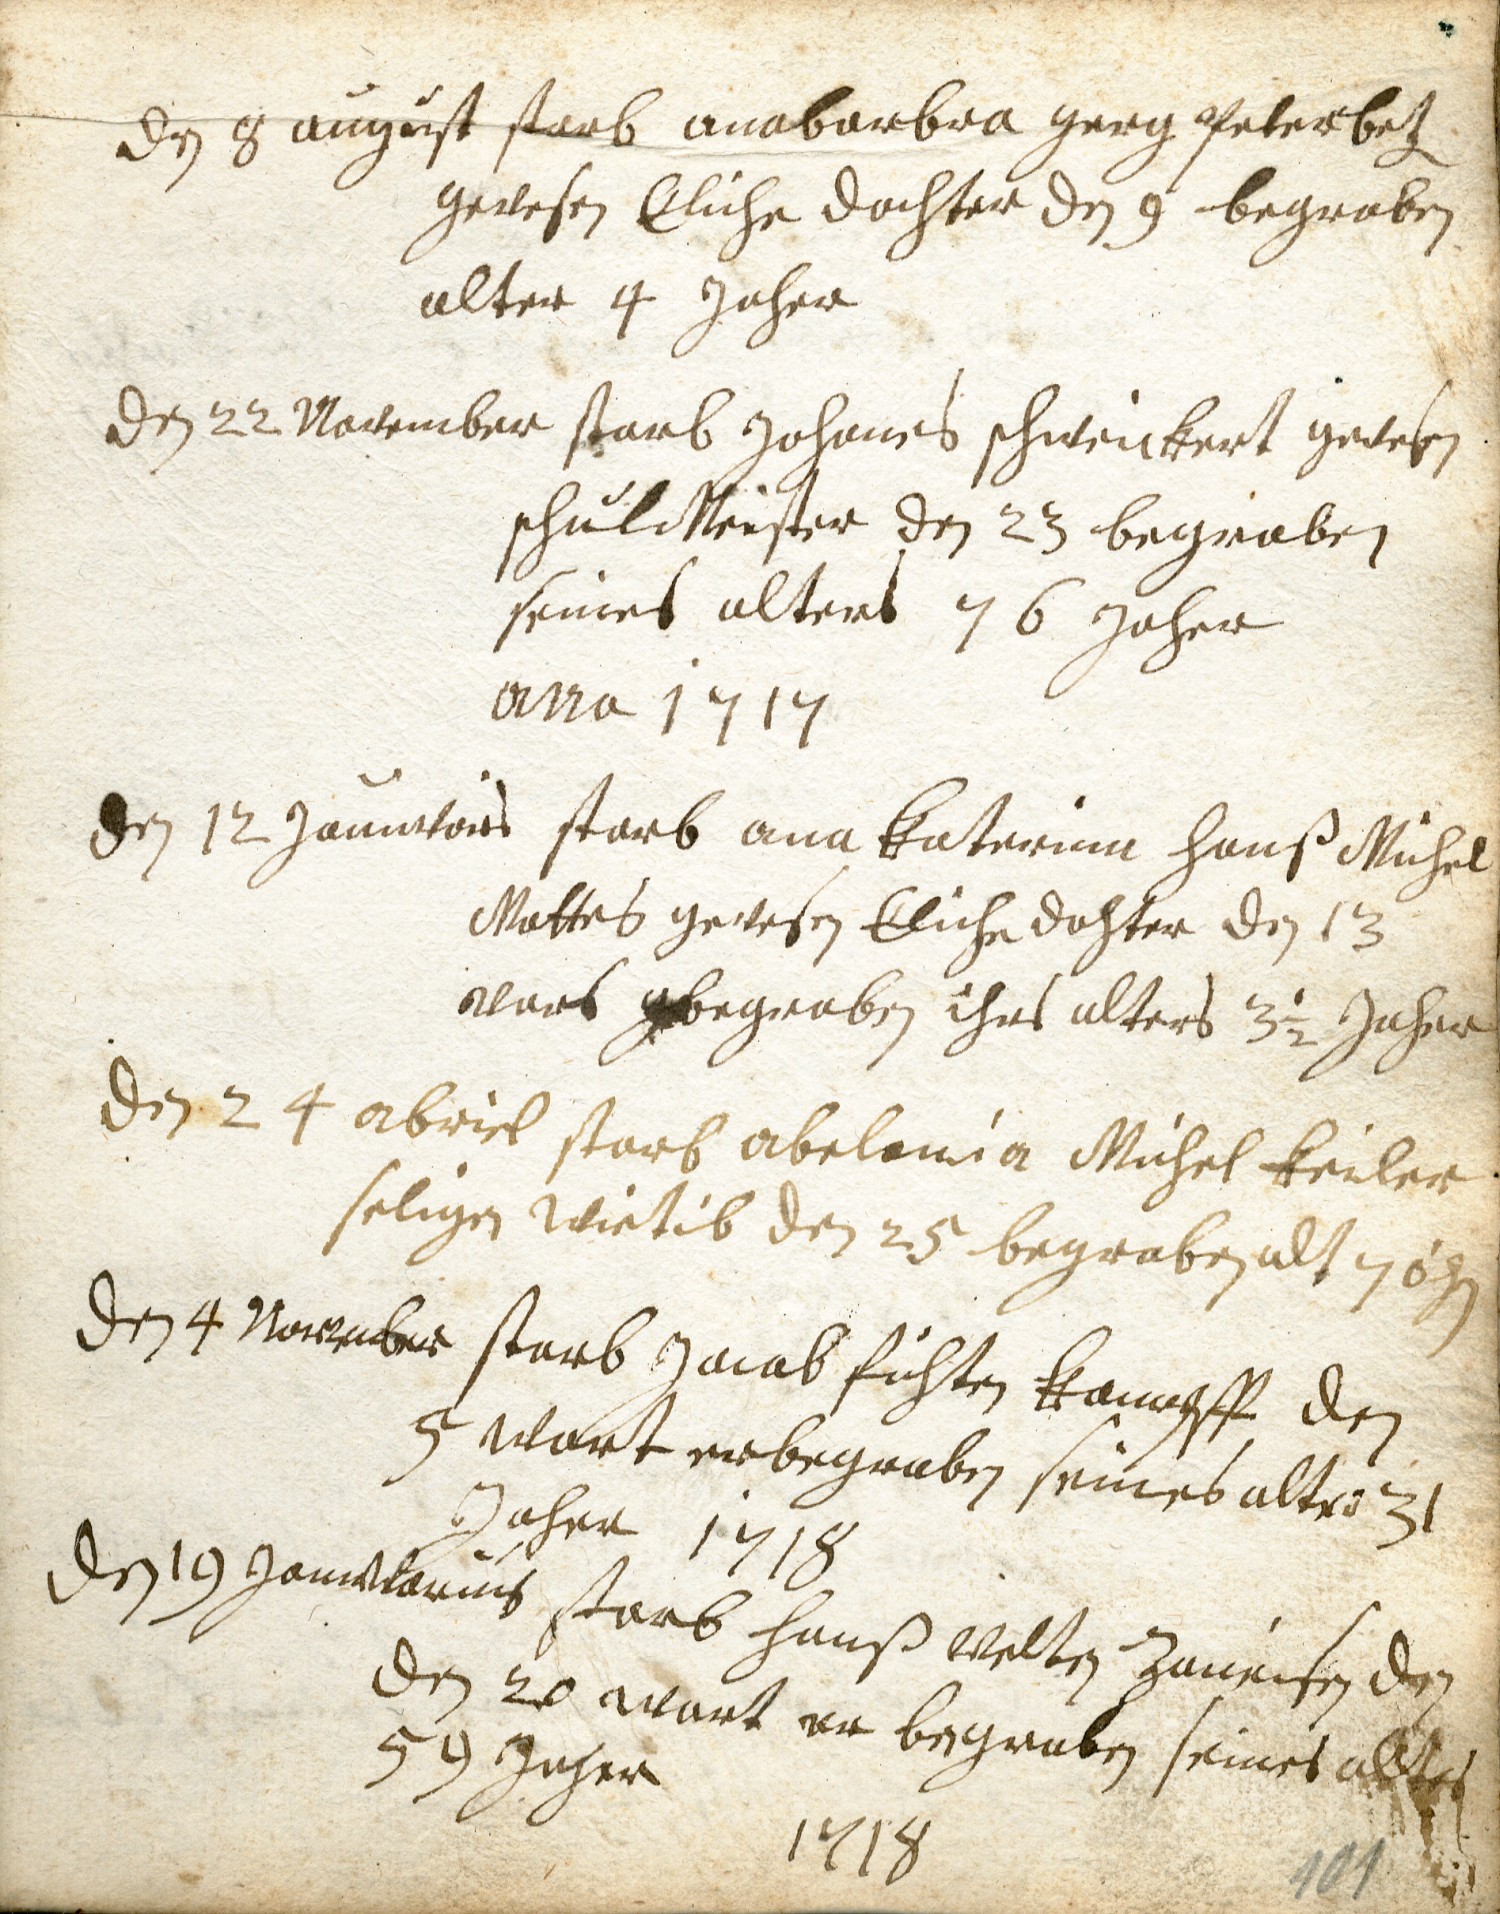 den 8 august starb anabarbra gerg Peter betz
gewesen Eliche dochter den 9 begraben
alter 4 Jaher
den 22 November starb Johanes schweickert gewesen
schulMeister den 23 begraben
seines alters 76 Jaher
anna 1717
den 12 starb ana Katerina hanß Michel
Mattes gewesen Eliche dohter den 13
wars begraben ihrs alters 3½ Jaher
den 24 abriel starb abelonia Michel Keiler
seligen wietib den 25 begraben alt
den 4 November starb Jacob fichten Kampff den
5 wart er begraben seines alters 31
Jaher 1718
den 19 starb hanß velten den
den 20 wart er begraben seines alters
59 Jaher
1718
101